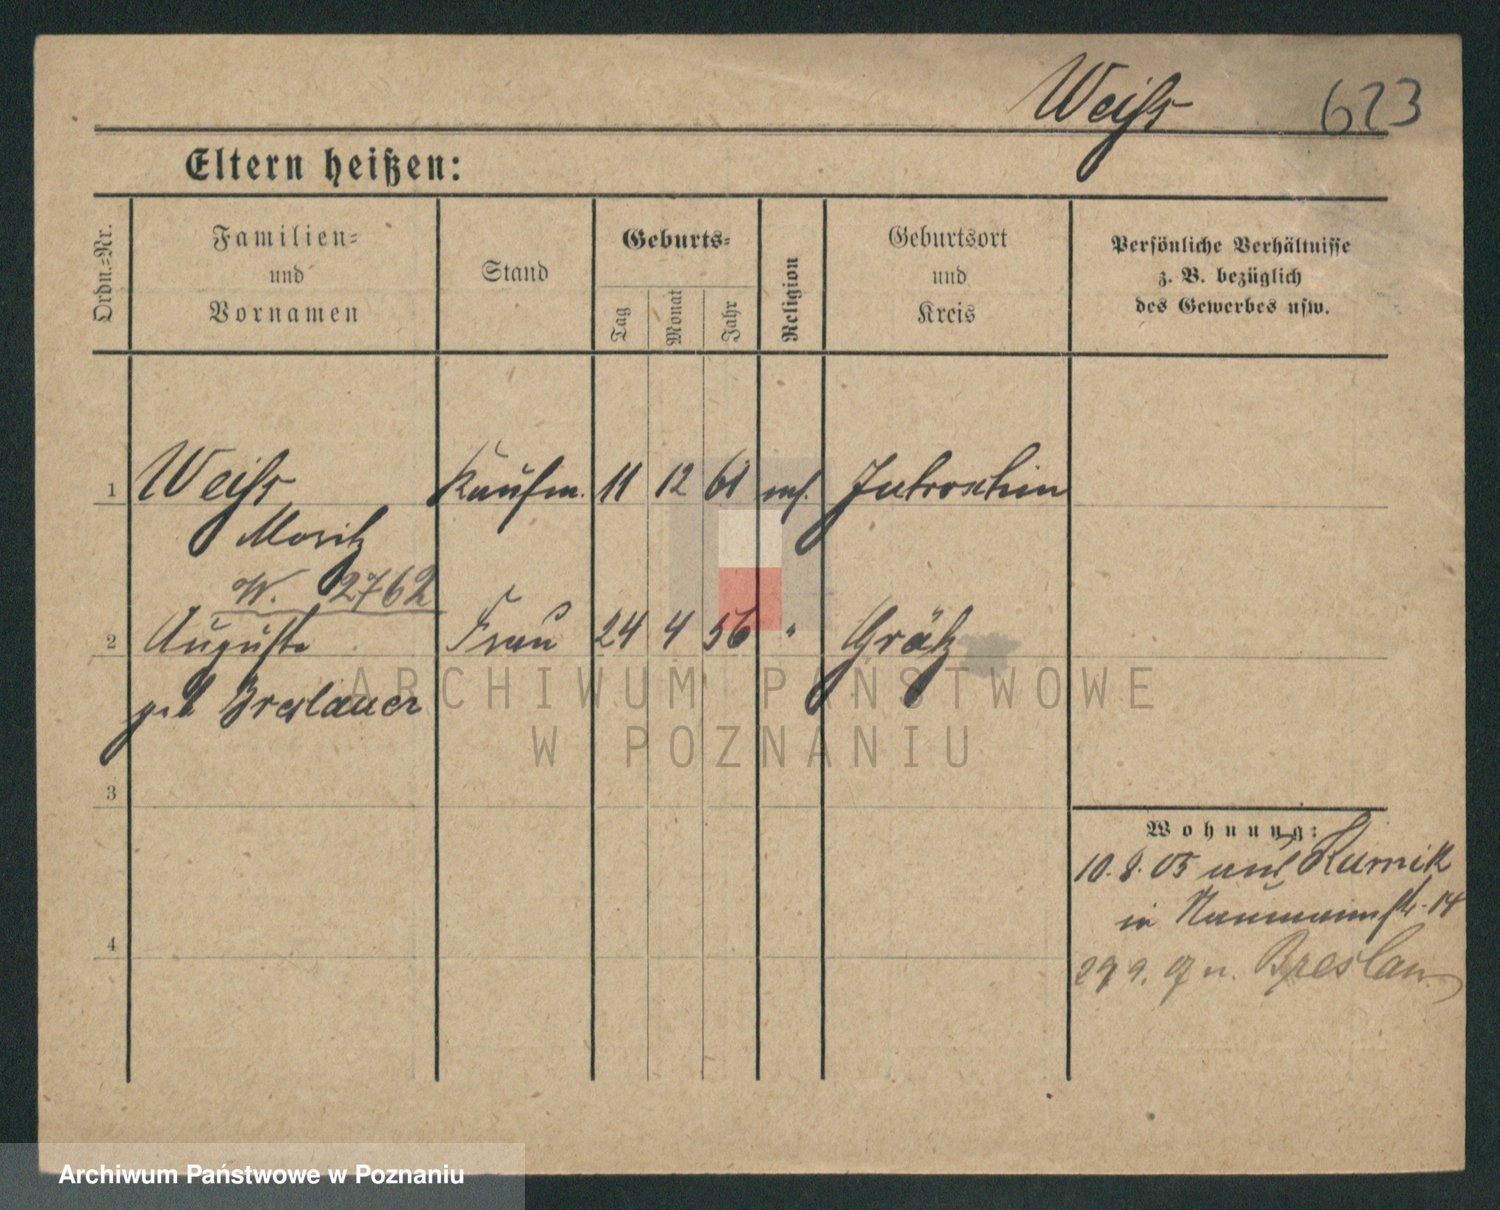 Weiss 623
Eltern heißen:
Ordn.-Nr.
Familien-
und
Vornamen
Stand
Geburts-
Tag
Monat
Jahr
Religion
Geburtsort
und
Kreis
Persönliche Verhältnisse
z. B. bezüglich
des Gewerbes usw.
1 Weiss Kaufm. 11 12 61 mos. Jutroschin
Moritz
W. 2762
2 Auguste Frau 24 4 56 " Grätz
geb Breslauer
3
4
Wohnung:
10. 8. 05 aus Kurnik
in Naumannstr. 14
29 9. 07 n. Breslau
ARCHIWUM PAŃSTWOWE
W POZNANIU
Archiwum Państwowe w Poznaniu